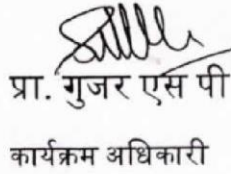 प्रा. गुजर एस पी
कार्यक्रम अधिकारी